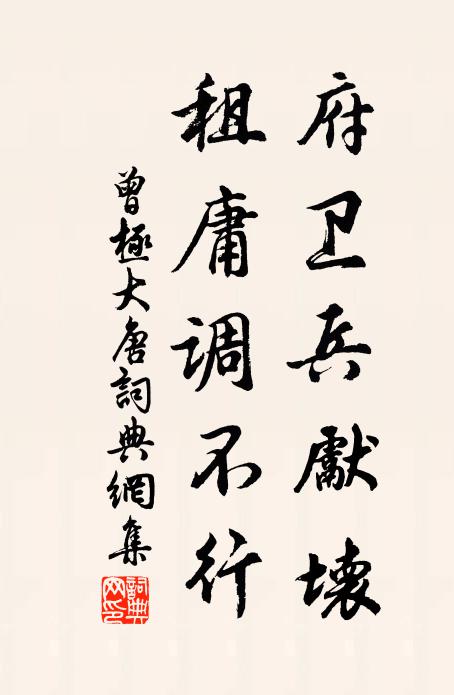 府卫兵獻壞
租庸調不行
曾極大唐詞典網集
詞典網印